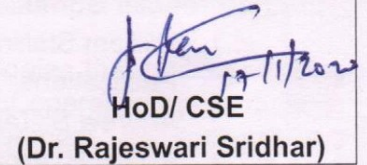 17/1/2020
HoD/ CSE
(Dr. Rajeswari Sridhar)